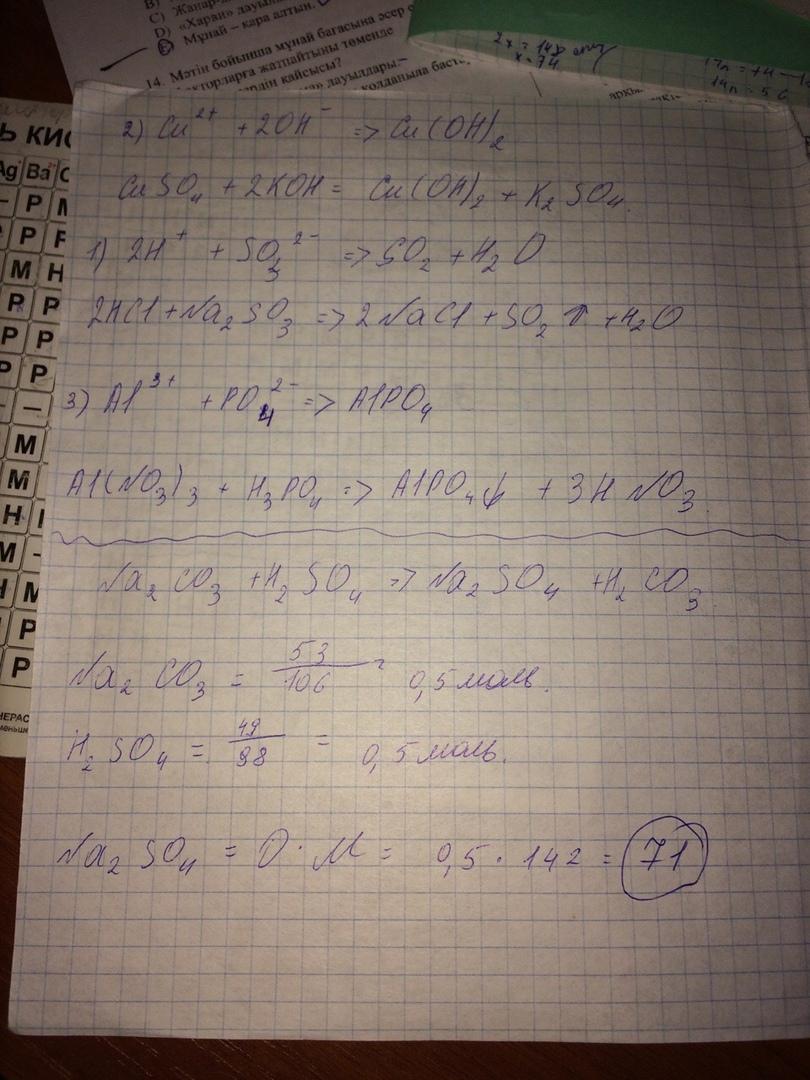 C) Жанар-
D) «Харви» дауыл
E) Мұнай – қара алтын.
14. Мәтін бойынша мұнай бағасына әсер
кторларға жатпайтыны төменде
қайсысы?
дауылдары-
қолданыла
2x = 148
x = 74
Ь КИС
Ag Ba
– Р М
Р Р
М Н
Р Р
Р Р
Р Р
– –
М
М
Н
М –
Н М
Р
Р
НЕРАС
2) Cu²⁺ + 2OH⁻ => Cu(OH)₂
CuSO₄ + 2KOH = Cu(OH)₂ + K₂SO₄.
1) 2H⁺ + SO₃²⁻ => SO₂ + H₂O
2HCl + Na₂SO₃ => 2NaCl + SO₂ ↑ + H₂O
3) Al³⁺ + PO₄²⁻ => AlPO₄
Al(NO₃)₃ + H₃PO₄ => AlPO₄↓ + 3HNO₃.
Na₂CO₃ + H₂SO₄ => Na₂SO₄ + H₂CO₃
Na₂CO₃ = 53/106 = 0,5 моль.
H₂SO₄ = 49/98 = 0,5 моль.
Na₂SO₄ = D · M = 0,5 · 142 = 71